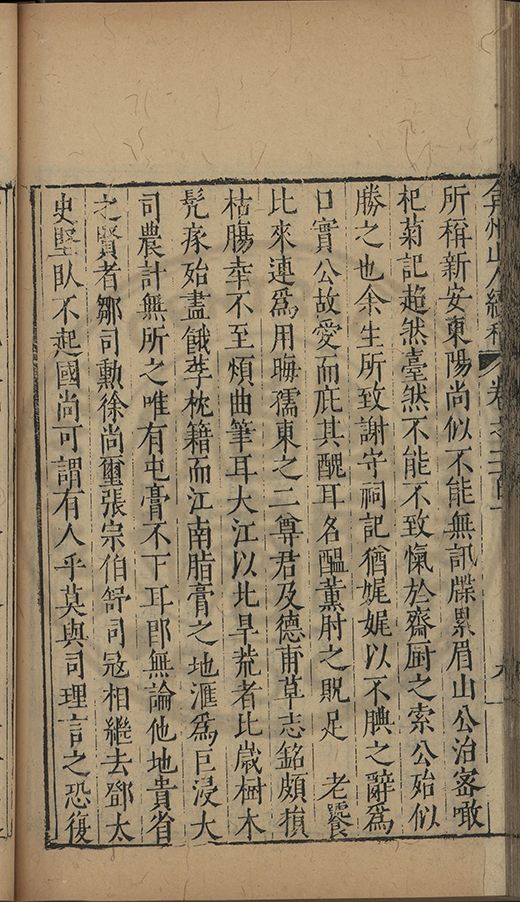 弇州山人續稿 卷之二百一 九
所稱新安東陽尚似不能無訊牒累眉山公治密噉
杞菊記超然臺然不能不致愾於齋厨之索公殆似
勝之也余生所致謝守祠記猶娓娓以不腆之辭爲
口實公故愛而庇其醜耳名醖薰肘之貺足 老饕
比來連爲用晦孺東之二尊君及德甫草志銘頗損
枯腸幸不至煩曲筆耳大江以北旱荒者比歲樹木
髠痕殆盡餓莩枕籍而江南脂膏之地滙爲巨浸大
司農計無所之唯有屯膏不下耳郎無論他地貴省
之賢者鄒司勳徐尚璽張宗伯舒司冦相繼去鄧太
史堅臥不起國尚可謂有人乎莫與司理言之恐復